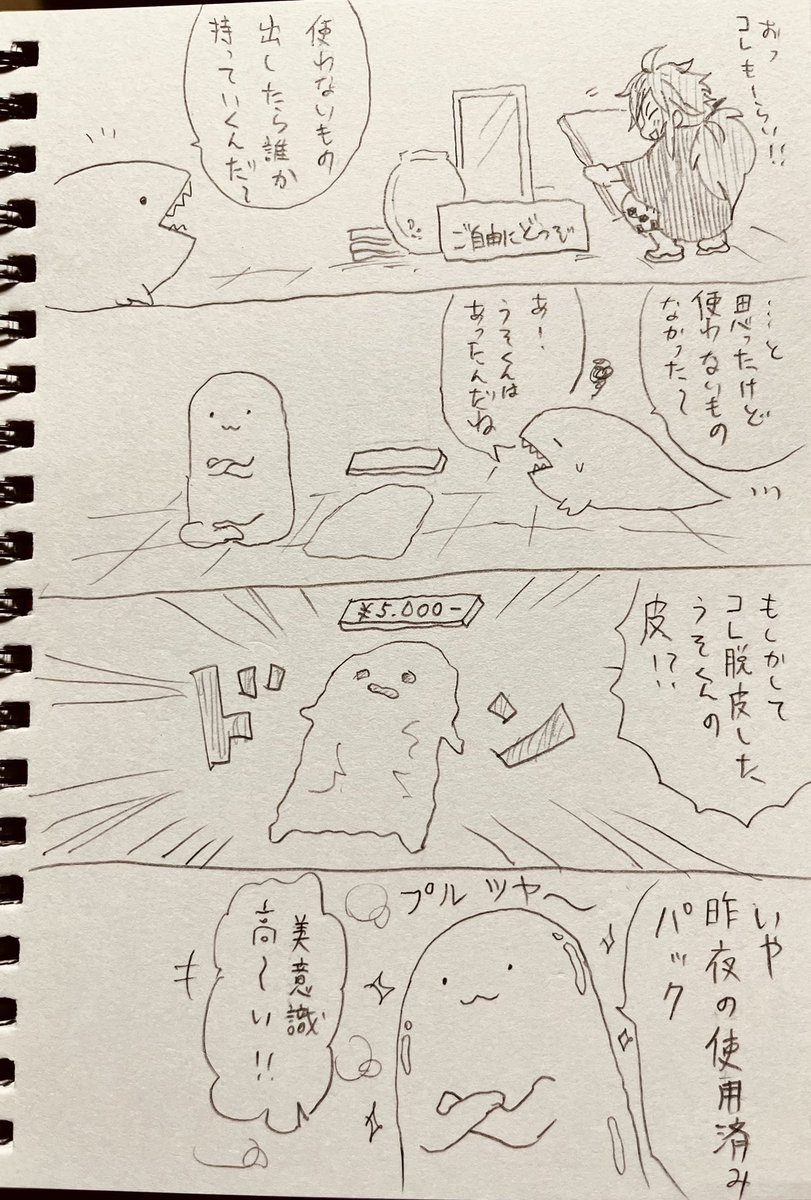 おっ
コレもーらい!!
ご自由にどうぞ
使わないもの
出したら誰か
持っていくんだ〜
…と
思ったけど
使わないもの
なかった〜
あー、
うそくんは
あったんだね
もしかして
コレ脱皮した、
うそくんの
皮!?
¥5.000-
ドン
いや
昨夜の使用済み
パック
プル ツヤ〜
美意識
高〜い!!